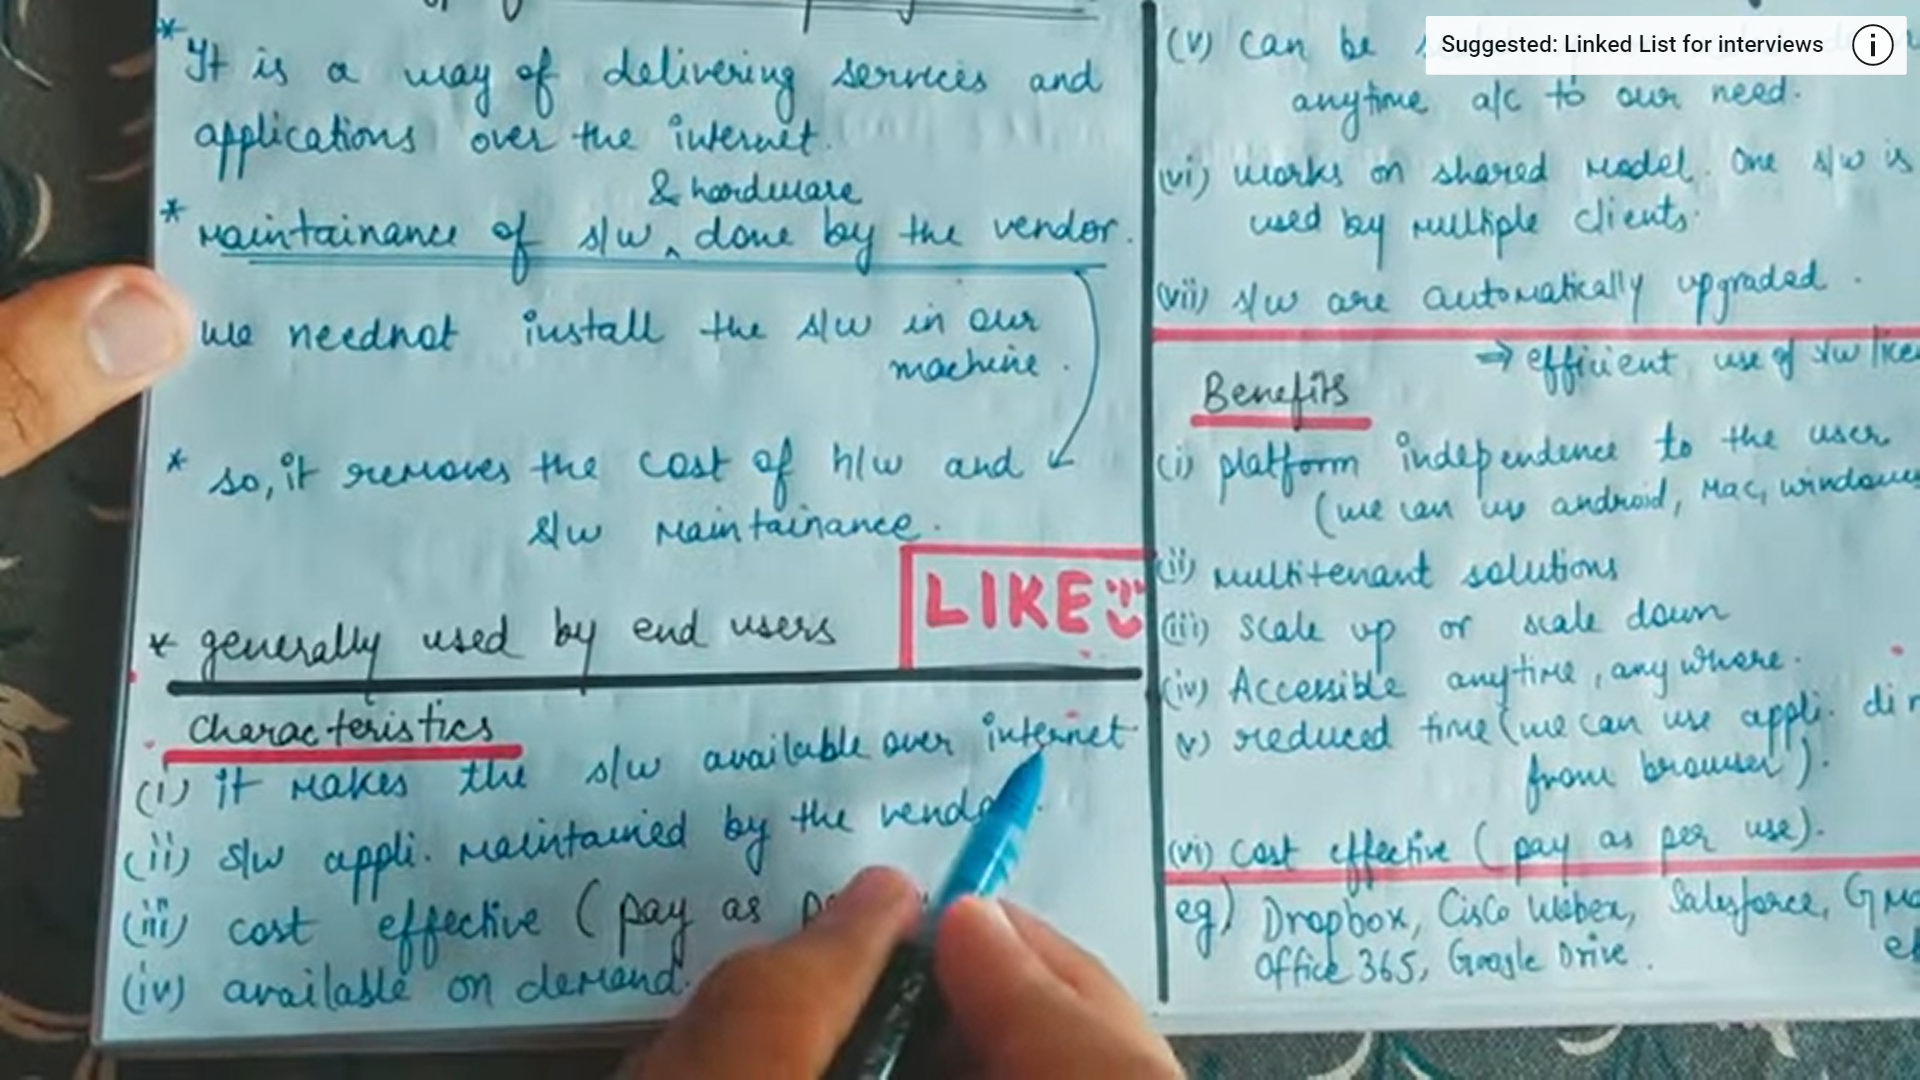 * It is a way of delivering services and
applications over the internet.
& hardware
* maintainance of s/w ‸ done by the vendor.
we neednot install the s/w in our
machine.
* so, it removes the cost of h/w and
s/w maintainance.
* generally used by end users
LIKE
Characteristics
(i) it makes the s/w available over internet
(ii) s/w appli. maintained by the vendor.
(iii) cost effective (pay as
(iv) available on demand.
Suggested: Linked List for interviews
(v) can be
anytime a/c to our need.
(vi) works on shared model. One s/w is
used by multiple clients.
(vii) s/w are automatically upgraded.
→ efficient use of s/w lice
Benefits
(i) platform independence to the user
(we can use android, Mac, windows
(ii) multitenant solutions
(iii) scale up or scale down
(iv) Accessible anytime, anywhere.
(v) reduced time (we can use appli. dir
from browser).
(vi) cost effective (pay as per use).
eg) Dropbox, Cisco Webex, Salesforce, Gma
Office 365, Google Drive.